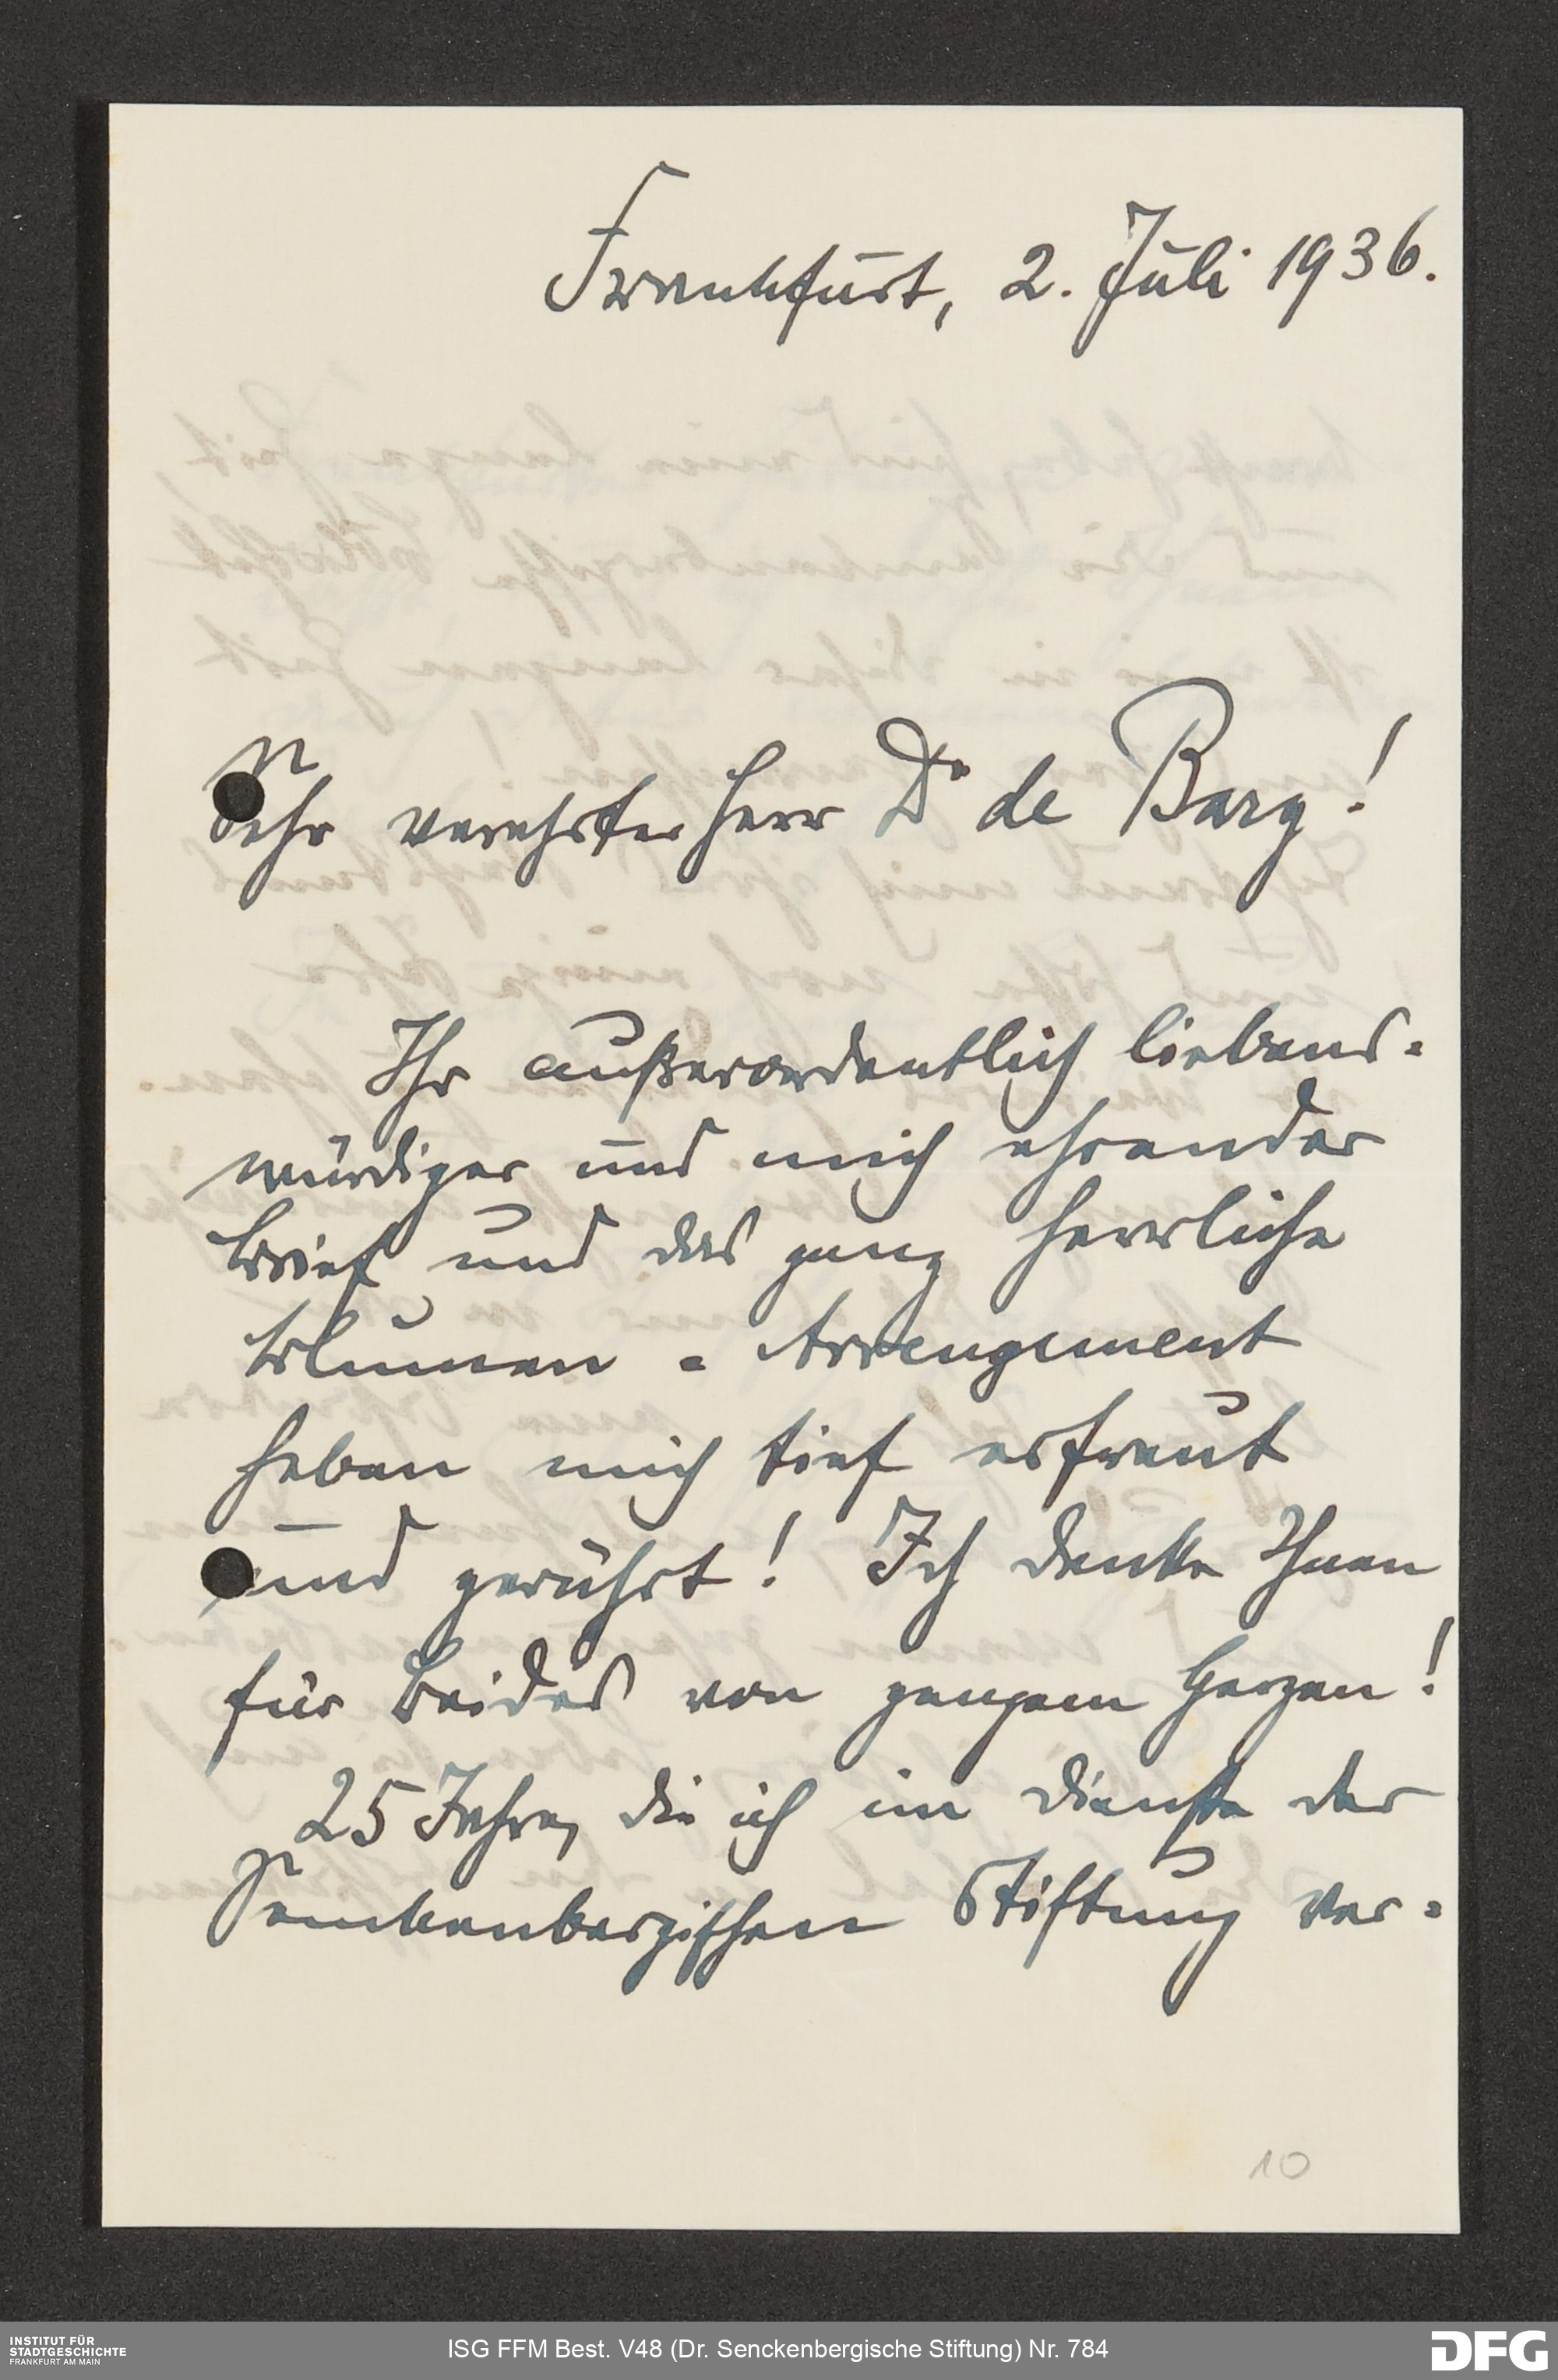 Frankfurt, 2. Juli 1936.
Sehr verehrter Herr Dr de Bary!
Ihr außerordentlich liebens-
würdiger und mich ehrender
Brief und das ganz herrliche
Blumen-Arrangement
haben mich tief erfreut
und gerührt! Ich danke Ihnen
für Beides von ganzem Herzen!
25 Jahre, die ich im Dienste der
Senkenbergischen Stiftung ver-
10
INSTITUT FÜR
STADTGESCHICHTE
FRANKFURT AM MAIN
ISG FFM Best. V48 (Dr. Senckenbergische Stiftung) Nr. 784
DFG